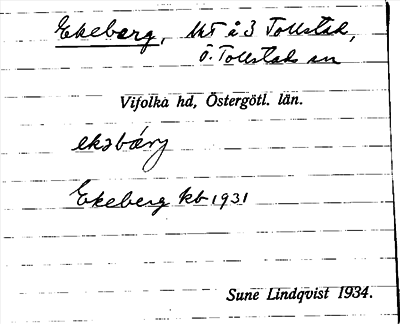 Ekeberg, lht å 3 Tollstad,
Ö. Tollstads sn
Vifolka hd, Östergötl. län.
ekəbærj
Ekeberg kb 1931
Sune Lindqvist 1934.